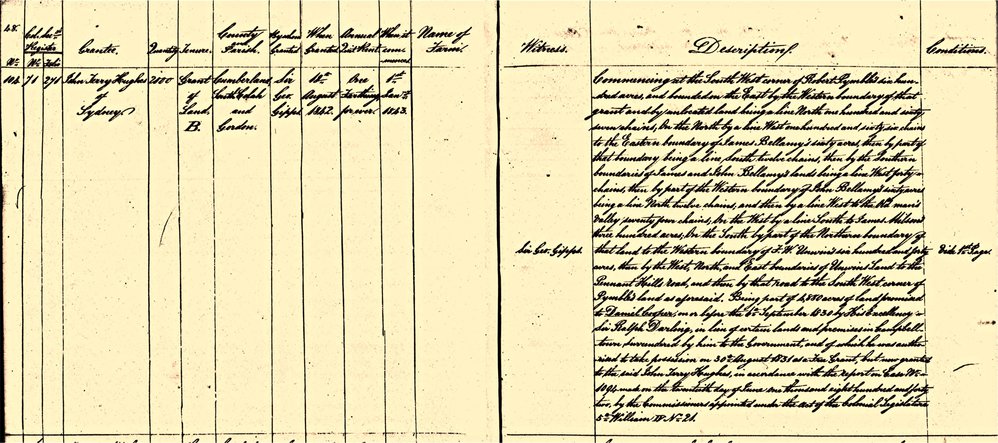 48.
Col. Sec.rs
Register
No. Folio
Grantee.
Quantity
Tenure.
County
Parish.
By whom
Granted
When
Granted
Annual
Quit Rent
When it
com-
mences
Name of
Farm.
Witness.
Description.
Conditions.
104
71
271
John Terry Hughes
of
Sydney
2500
Grant
of
Land.
B.
Cumberland,
South Colah
and
Gordon.
Sir
Geo.
Gipps.
18th
August
1842.
One
Farthing
forever.
1st
Jan.y
1843.
Commencing at the South West corner of Robert Pymble's six hun-
dred acres, and bounded on the East by the Western boundary of that
grant and by unlocated land being a line North one hundred and sixty
seven chains, On the North by a line West one hundred and sixty six chains
to the Eastern boundary of James Bellamy's sixty acres, then by part of
that boundary being a line South twelve chains, then by the Southern
boundaries of James and John Bellamy's lands being a line West forty
chains, then by part of the Western boundary of John Bellamy's sixty acres
being a line North twelve chains, and then by a line West to the
valley seventy four chains, On the West by a line South to James Milson's
three hundred acres, On the South by part of the Northern boundary of
Sir Geo. Gipps.
that land to the Western boundary of F. W. Unwin's six hundred and forty
Vide 1st Page.
acres, then by the West, North, and East boundaries of Unwin's Land to the
Pennant Hills road, and then by that road to the South West corner of
Pymble's land as aforesaid. Being part of 4,880 acres of land promised
to Daniel Cooper, on or before the September 1830 by His Excellency
Sir Ralph Darling, in lieu of certain lands and premises in Campbell-
town, surrendered by him to the Government, and of which he was autho-
rised to take possession on 30th August 1831 as a Free Grant, but now granted
to the said John Terry Hughes, in accordance with the report on Case No.
1094 made on the twentieth day of June one thousand eight hundred and forty
two, by the Commissioners appointed under the Act of the Colonial Legislature
5th William IV No. 21.